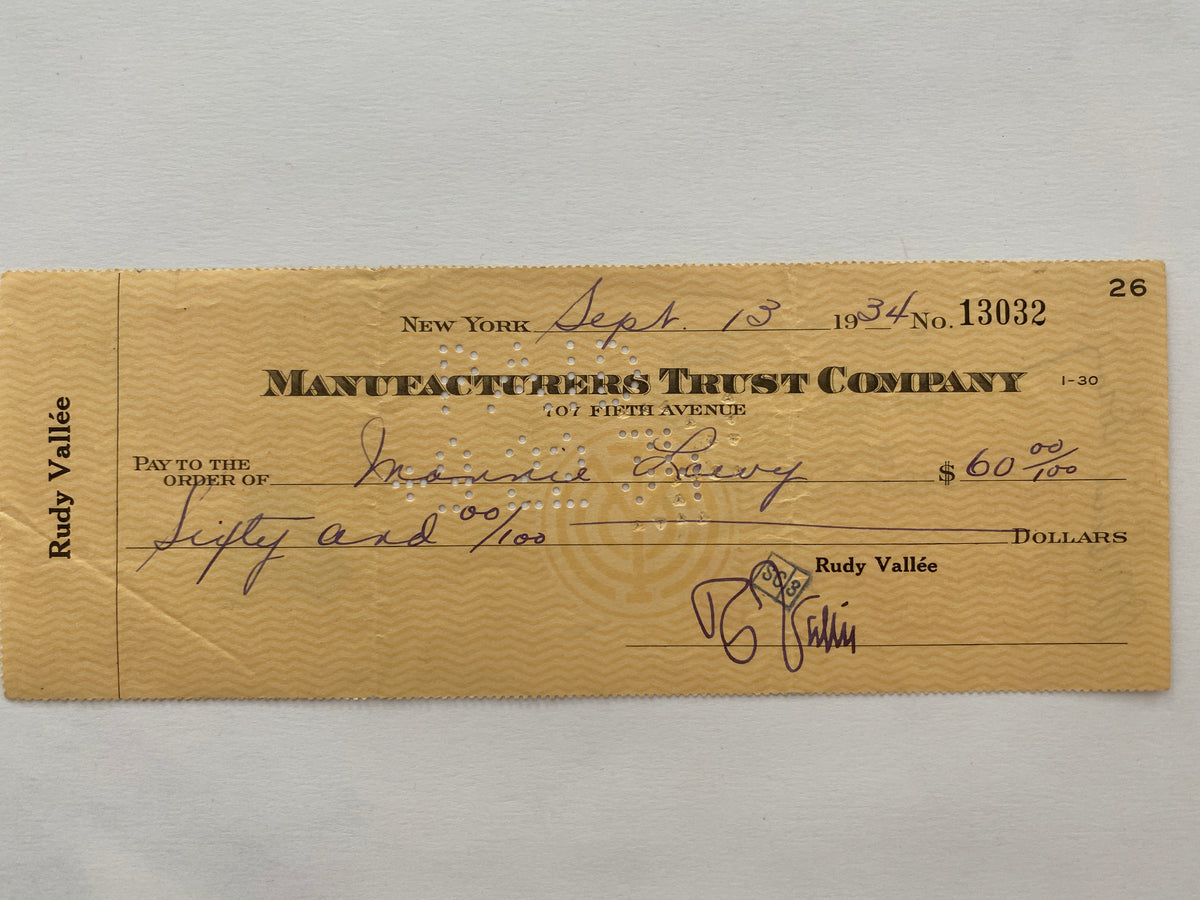 26
NEW YORK Sept. 13 1934 No. 13032
MANUFACTURERS TRUST COMPANY 1-30
707 FIFTH AVENUE
PAY TO THE
ORDER OF Mannie Loevy $ 60 00/100
Sixty and 00/100 DOLLARS
Rudy Vallée
SC 3
R Vallée
Rudy Vallée